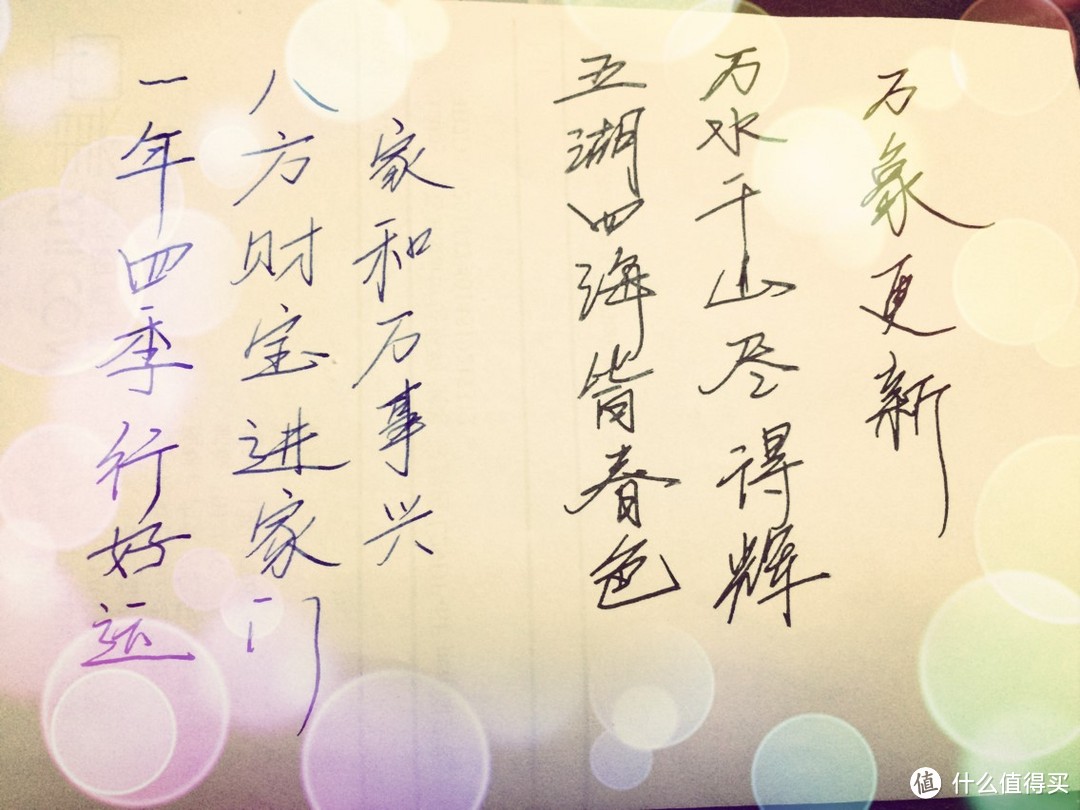 万象更新
万水千山尽得辉
五湖四海皆春色
家和万事兴
八方财宝进家门
一年四季行好运
值 什么值得买